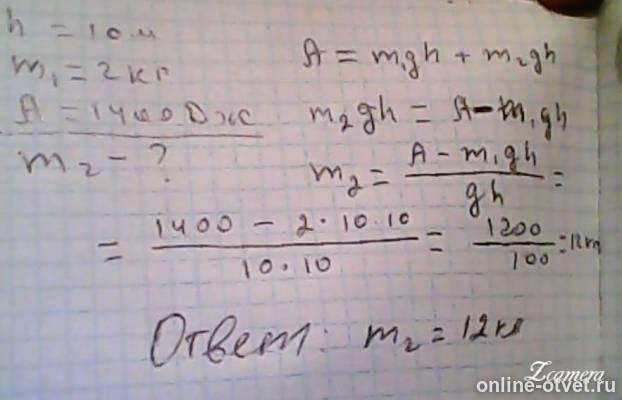 h = 10 м
m₁ = 2 кг
A = 1400 Дж
m₂ - ?
A = m₁gh + m₂gh
m₂gh = A - m₁gh
m₂ = (A - m₁gh) / gh =
= (1400 - 2·10·10) / (10·10) = 1200 / 100 = 12кг
Ответ: m₂ = 12кг
Zcamera
online-otvet.ru